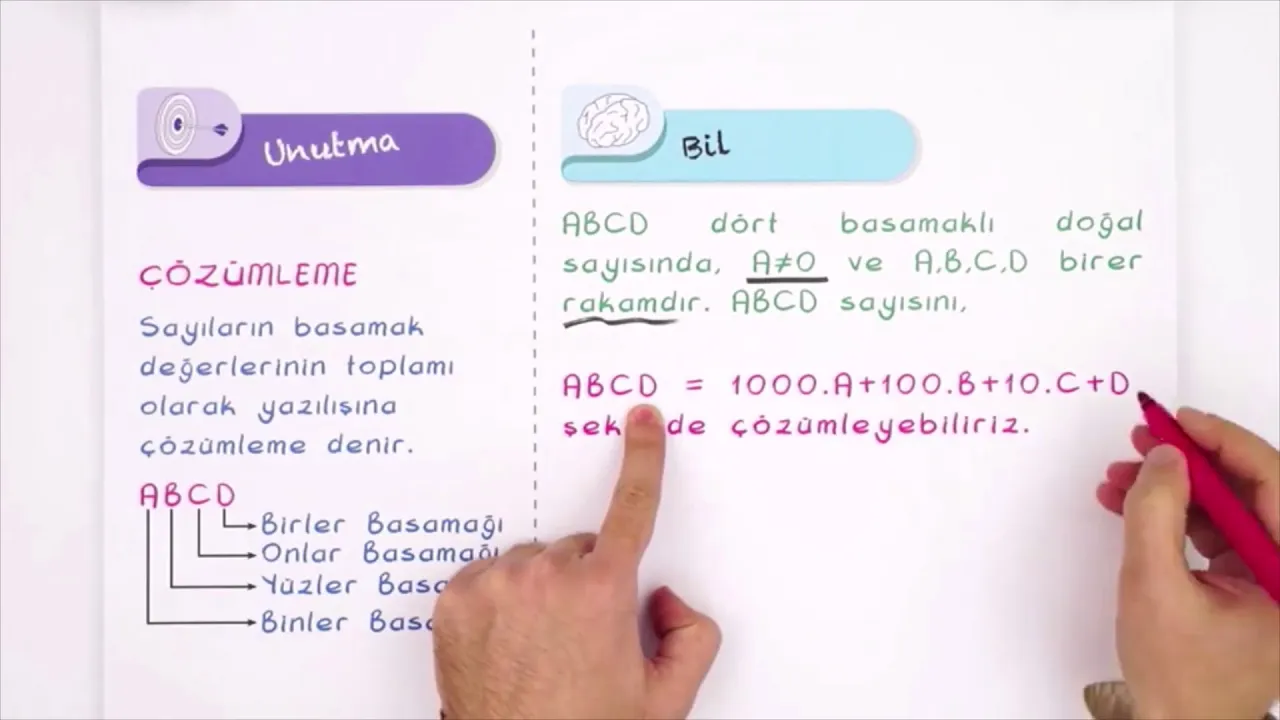 Unutma
ÇÖZÜMLEME
Sayıların basamak
değerlerinin toplamı
olarak yazılışına
çözümleme denir.
ABCD
Birler Basamağı
Onlar Basamağı
Yüzler
Binler
Bil
ABCD dört basamaklı doğal
sayısında, A≠0 ve A,B,C,D birer
rakamdır. ABCD sayısını,
ABCD = 1000.A+100.B+10.C+D
çözümleyebiliriz.